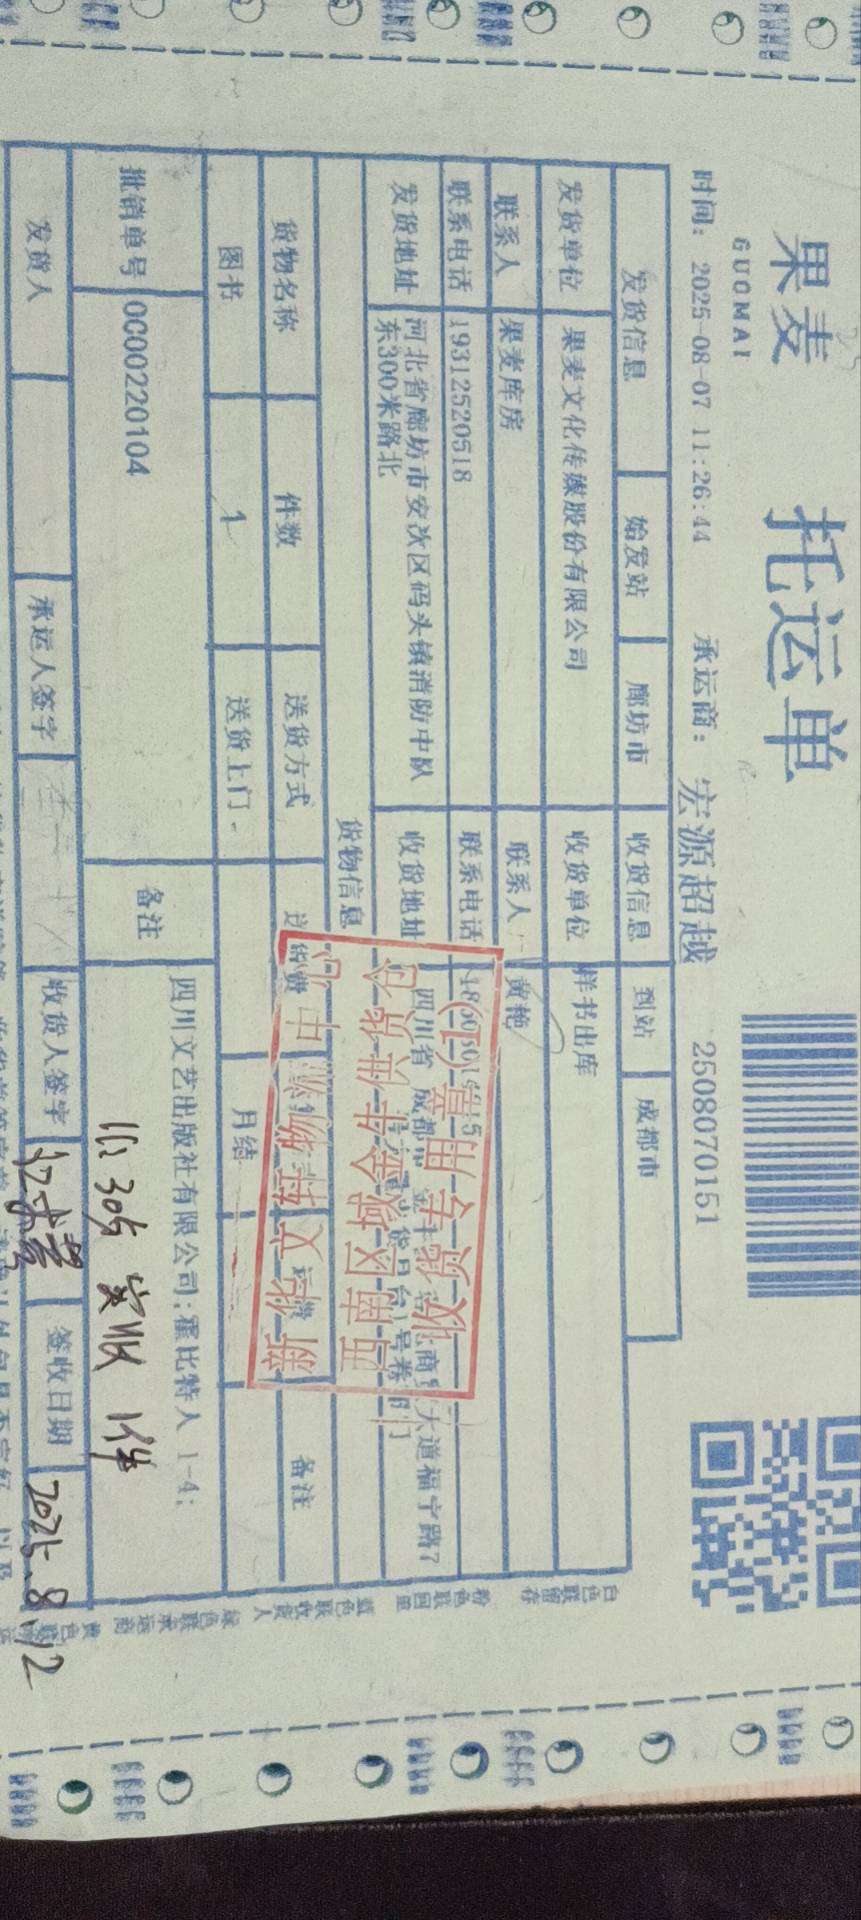 果麦
GUOMAI
托运单
时间：2025-08-07 11:26:44 承运商：宏源超越 2508070151
发货信息 始发站 廊坊市 收货信息 到站 成都市
发货单位 果麦文化传媒股份有限公司 收货单位 样书出库
联系人 果麦库房 联系人 黄艳
联系电话 19312520518 联系电话
发货地址 河北省廊坊市安次区码头镇消防中队
东300米路北
收货地址 四川省 成都 大道福字路7
货物信息
货物名称 件数 送货方式 送货费 备注
图书 1 送货上门 月结
批销单号 0000220104 备注 四川文艺出版社有限公司:霍比特人 1-4;
实收 1件
发货人 承运人签字 收货人签字 签收日期 2025.8.12
新华文轩物流中心
西南区域金牛供货仓
收货专用章(1)
白色联留存
粉色联回里
蓝色联收货人
绿色联承运商